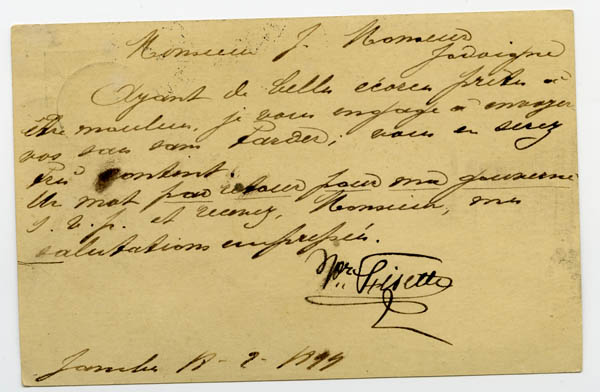 Monsieur J. Monseur
Jodoigne
Ayant de belles écorces prêtes à
être moulues, je vous engage à envoyer
vos sacs sans tarder; vous en serez
très content.
Un mot par retour pour ma gouverne
S. V. p. et recevez, Monsieur, mes
salutations empressées.
Lisette
Jambes 18-2-1899